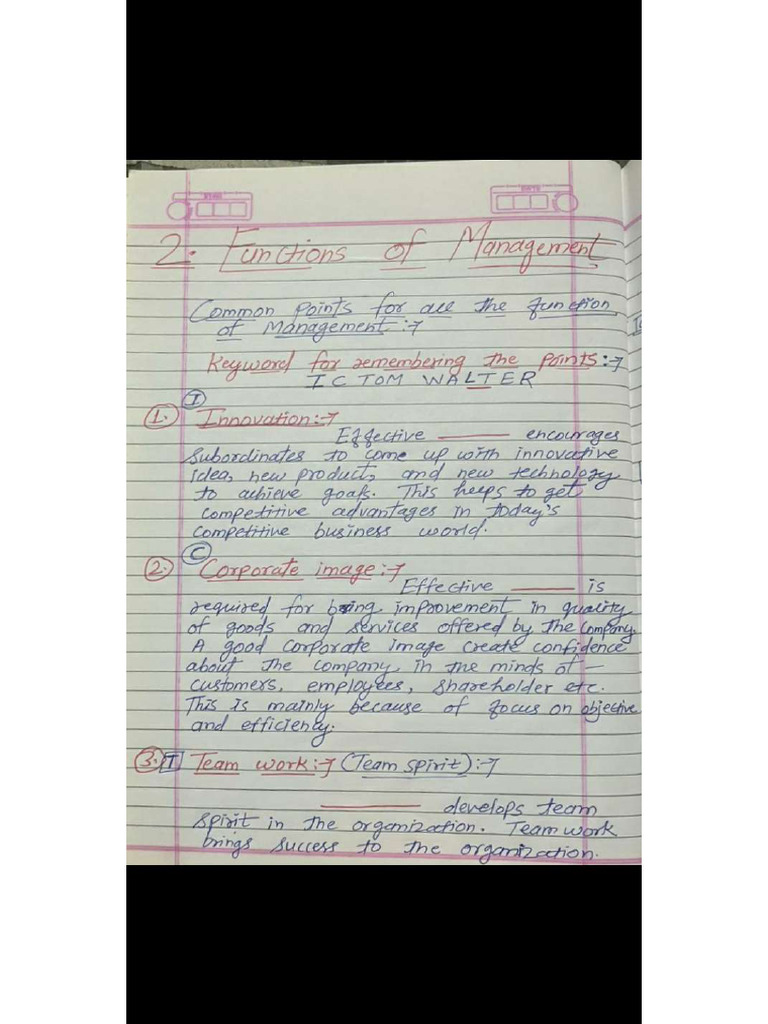 2. Functions of Management
Common Points for all the function
of Management :-
Keyword for remembering the points :-
IC TOM WALTER
I
1. Innovation :-
Effective ______ encourages
subordinates to come up with innovative
idea, new product, and new technology
to achieve goals. This helps to get
competitive advantages in today's
competitive business world.
C
2. Corporate image :-
Effective ______ is
required for bring improvement in quality
of goods and services offered by the company.
A good corporate image create confidence
about the company, in the minds of —
customers, employees, shareholder etc.
This is mainly because of focus on objective
and efficiency.
3. T Team work :- (Team spirit) :-
______ develops team
spirit in the organization. Team work
brings success to the organization.